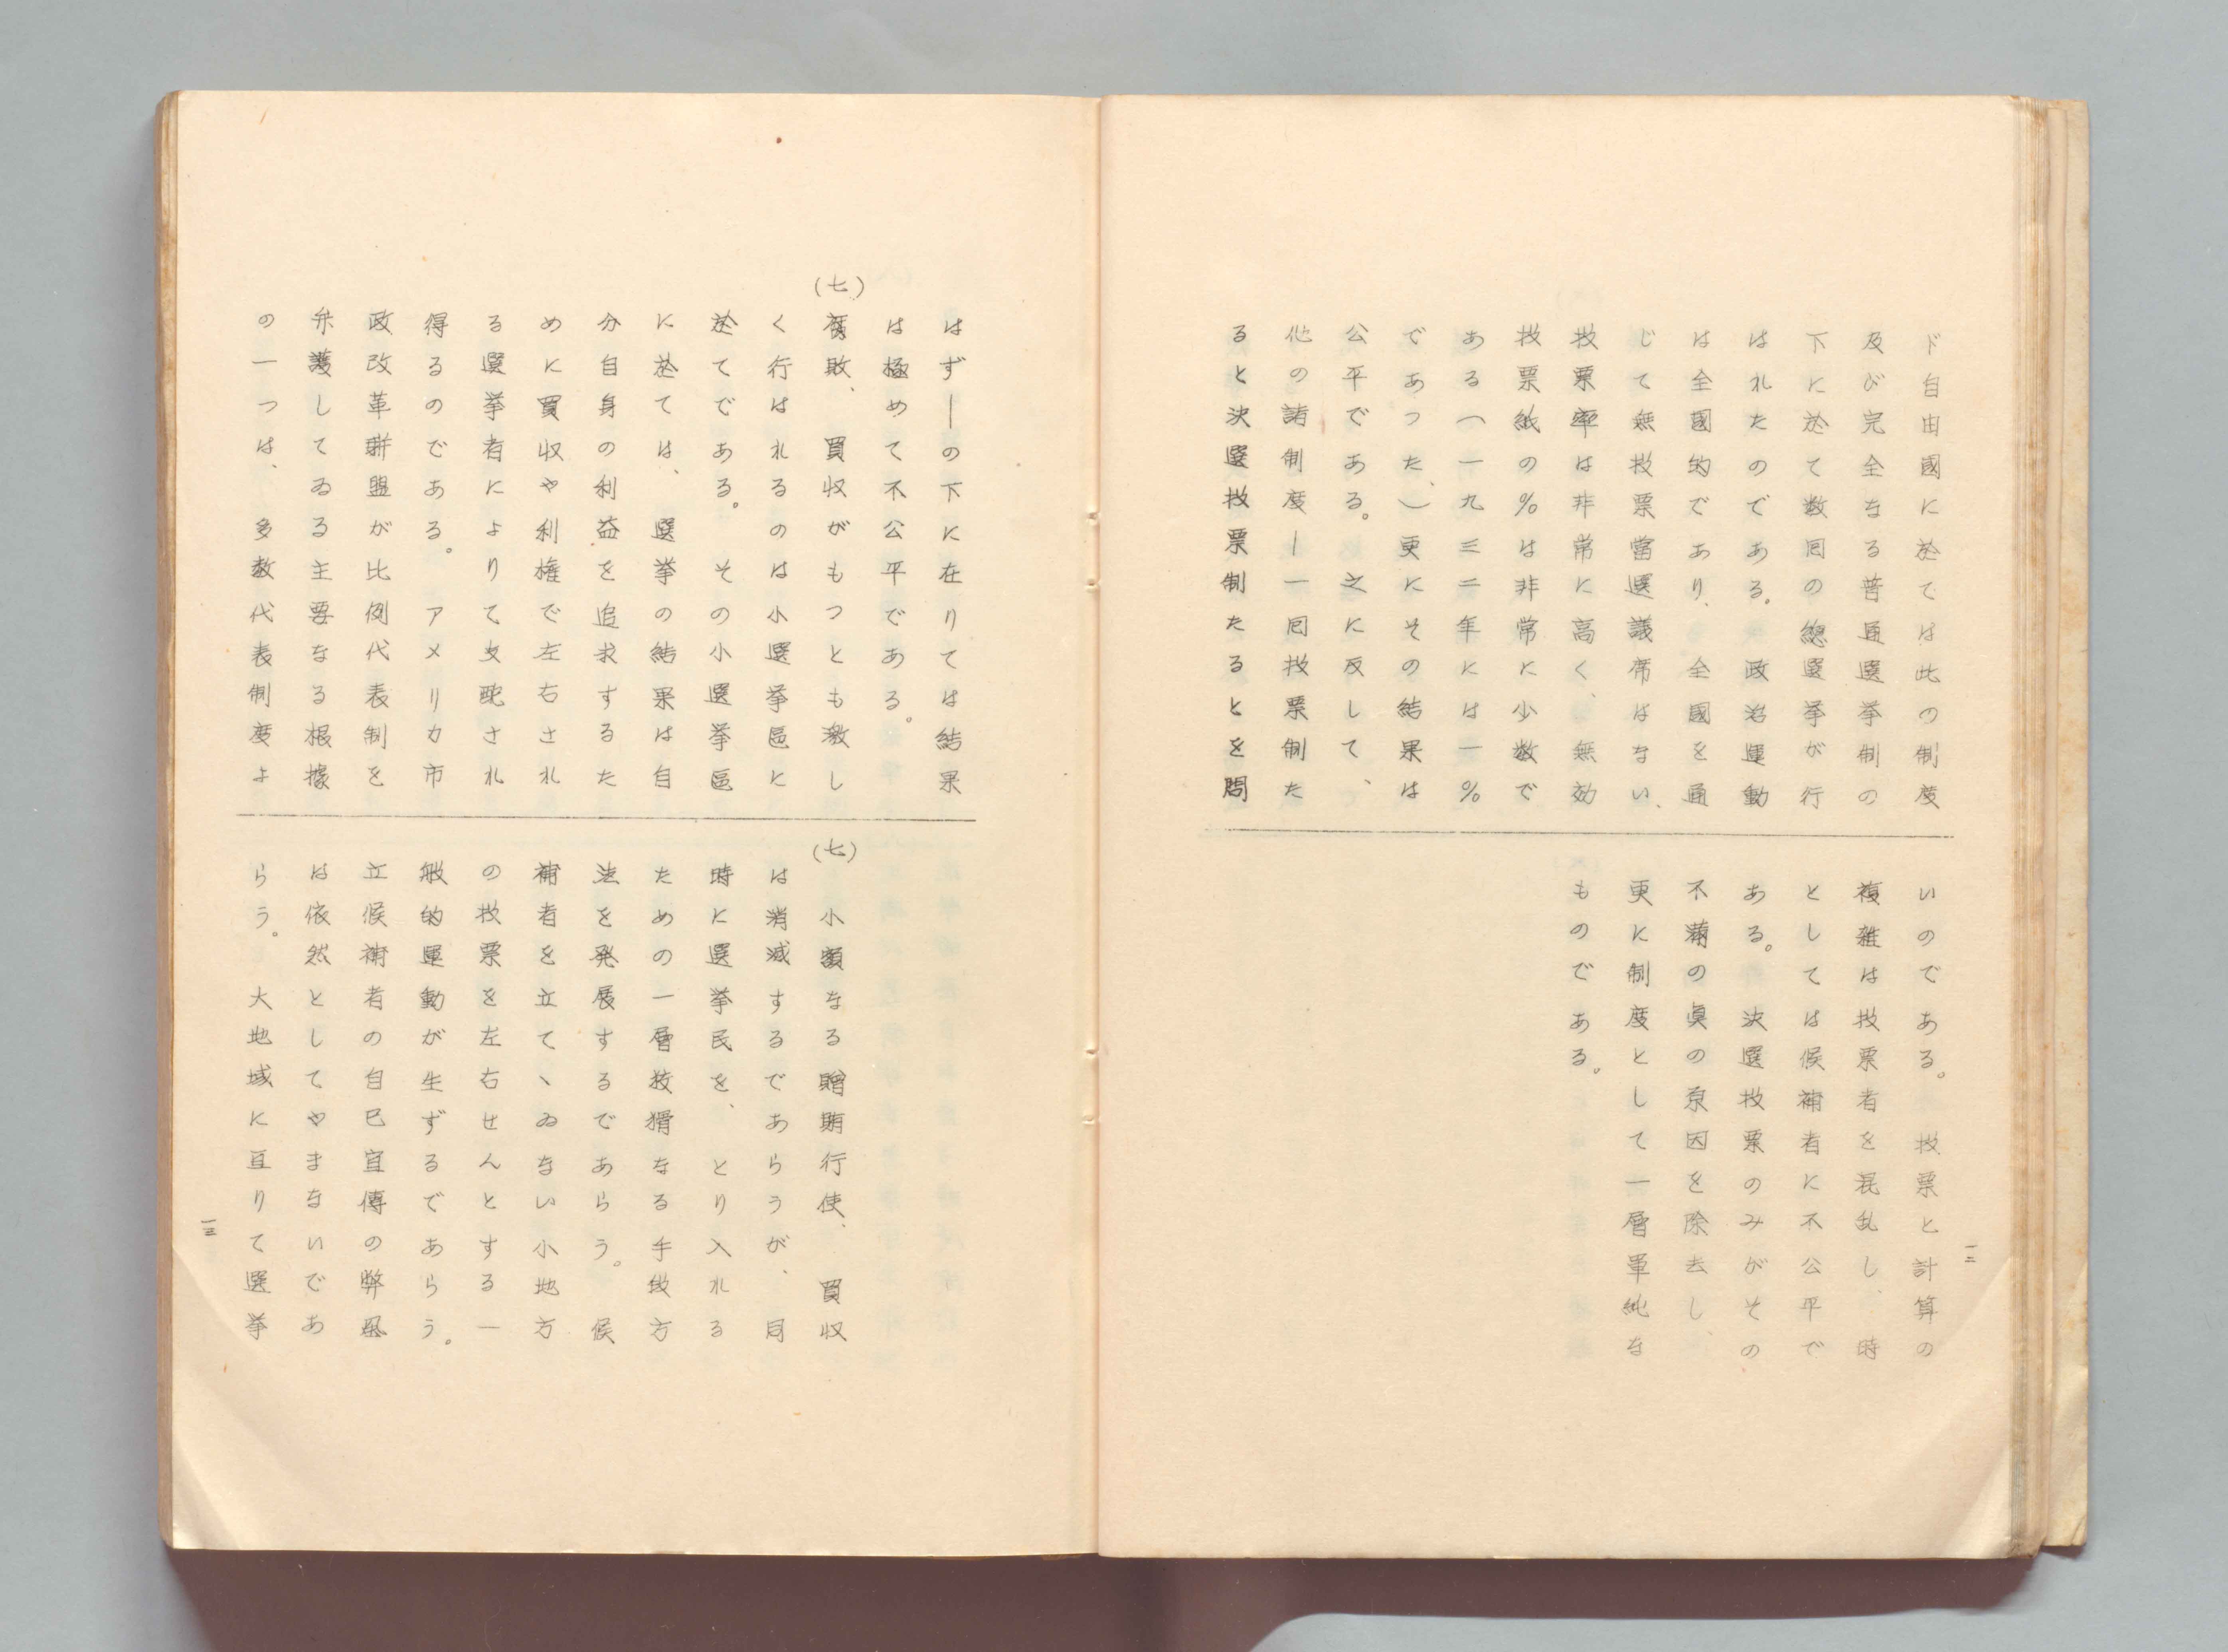 ド自由國に於ては此の制度
及び完全なる普通選挙制の
下に於て数囘の總選挙が行
はれたのである。政治運動
は全國的であり、全國を通
じて無投票當選議席はない、
投票率は非常に高く、無効
投票紙の%は非常に少数で
ある（一九三二年には一%
であつた、）更にその結果は
公平である。之に反して、
他の諸制度―一囘投票制た
ると決選投票制たるとを問
いのである。投票と計算の
複雑は投票者を混乱し、時
としては候補者に不公平で
ある。決選投票のみがその
不満の眞の原因を除去し、
更に制度として一層単純な
ものである。
一二
はず―の下に在りては結果
は極めて不公平である。
(七)
腐敗、買収がもつとも激し
く行はれるのは小選挙區に
於てである。その小選挙區
に於ては、選挙の結果は自
分自身の利益を追求するた
めに買収や利権で左右され
る選挙者によりて支配され
得るのである。アメリカ市
政改革聯盟が比例代表制を
弁護してゐる主要なる根據
の一つは、多数代表制度よ
(七)
小額なる贈賄行使、買収
は消滅するであらうが、同
時に選挙民を、とり入れる
ための一層狡猾なる手段方
法を発展するであらう。候
補者を立てゝゐない小地方
の投票を左右せんとする一
般的運動が生ずるであらう。
立候補者の自己宣傳の弊風
は依然としてやまないであ
らう。大地域に亘りて選挙
一三